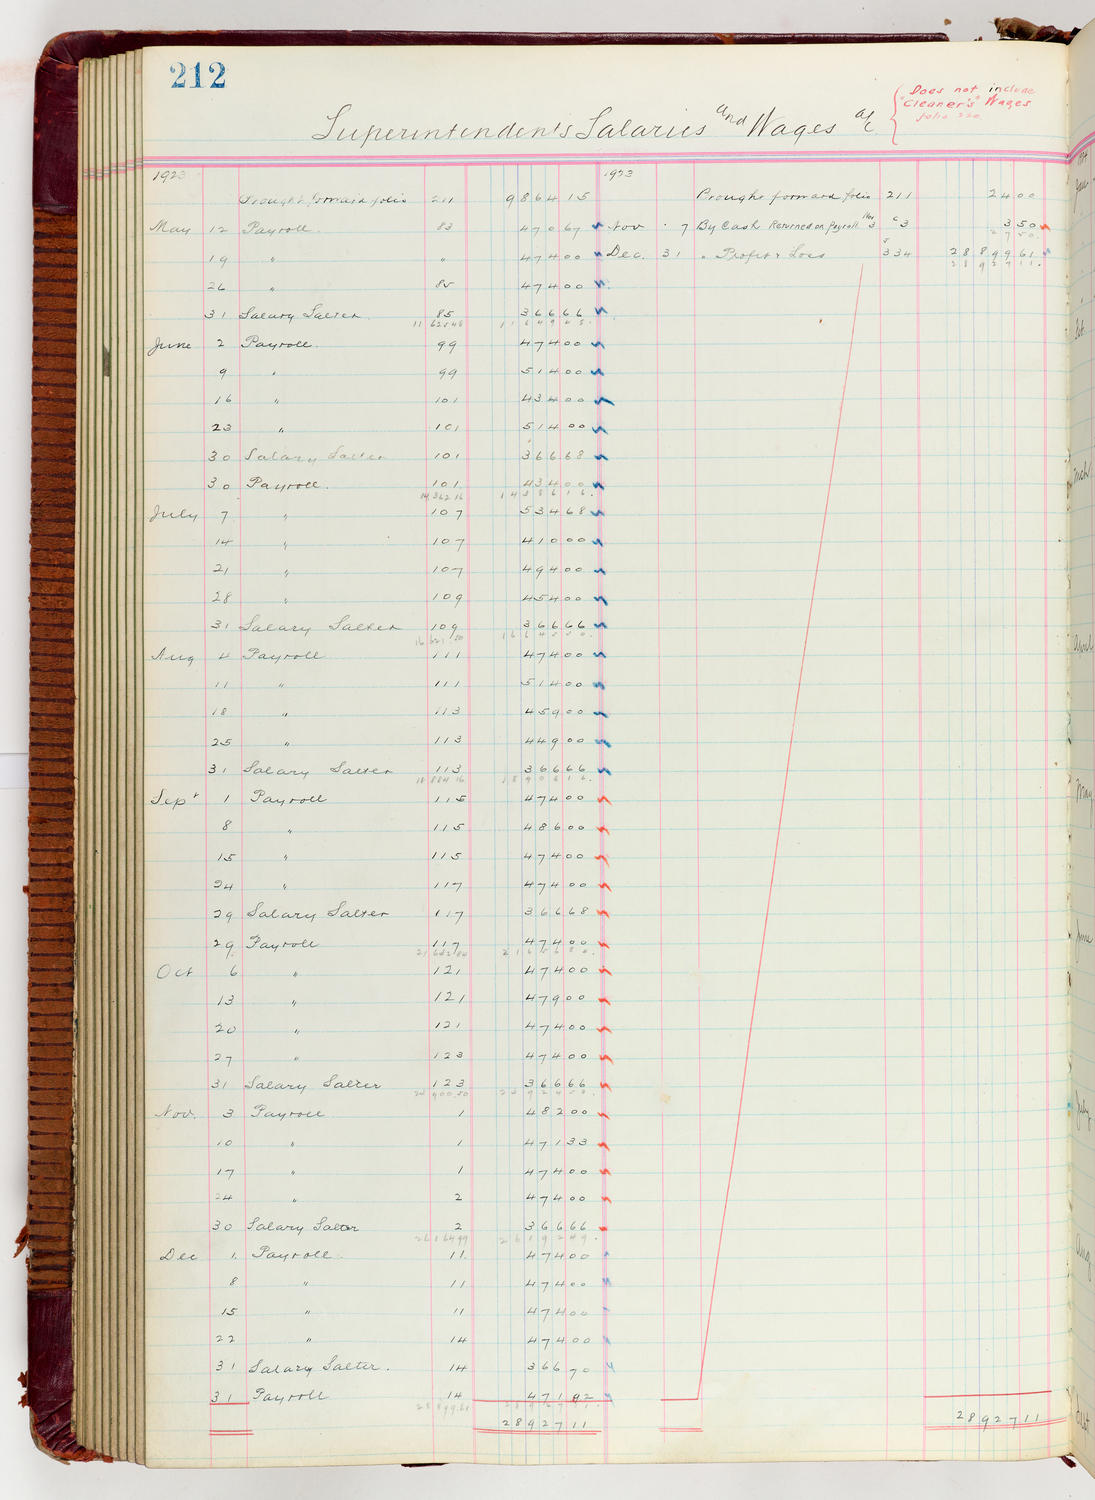 212
Superintenden's Salaries and Wages a/c
Does not include
"Cleaner's" Wages
folio 220
1923
Brought forward folio 211 9864 15
May 12 Payroll 83 470 67
19 " " 474 00
26 " 85 474 00
31 Salary Salter 85 366 66
11 625 48 11649 48
June 2 Payroll 99 474 00
9 " 99 514 00
16 " 101 434 00
23 " 101 514 00
30 Salary Salter 101 366 68
30 Payroll 101 434 00
14 362 16 14386 16
July 7 " 107 534 68
14 " 107 410 00
21 " 107 494 00
28 " 109 454 00
31 Salary Salter 109 366 66
16 621 50 16645 50
Aug 4 Payroll 111 474 00
11 " 111 514 00
18 " 113 459 00
25 " 113 449 00
31 Salary Salter 113 366 66
18 884 16 18908 16
Sept 1 Payroll 115 474 00
8 " 115 486 00
15 " 115 474 00
24 " 117 474 00
29 Salary Salter 117 366 68
29 Payroll 117 474 00
21 632 84 21656 84
Oct 6 " 121 474 00
13 " 121 479 00
20 " 121 474 00
27 " 123 474 00
31 Salary Salter 123 366 66
23 900.50 23924 50
Nov. 3 Payroll 1 482 00
10 " 1 471 33
17 " 1 474 00
24 " 2 474 00
30 Salary Salter 2 366 66
26 168 49 26192 49
Dec 1. Payroll 11 474 00
8 " 11 474 00
15 " 11 474 00
22 " 14 474 00
31 Salary Salter. 14 366 70
31 Payroll 14 471 92
28 899.61 28927 11
28927 11
1923
Brought forward folio 211 24 00
Nov 7 By Cash Returned on payroll Nov 3 C3 3 50
27 50
Dec. 31 " Profit & Loss 334 28899 61
28927 11
28927 11